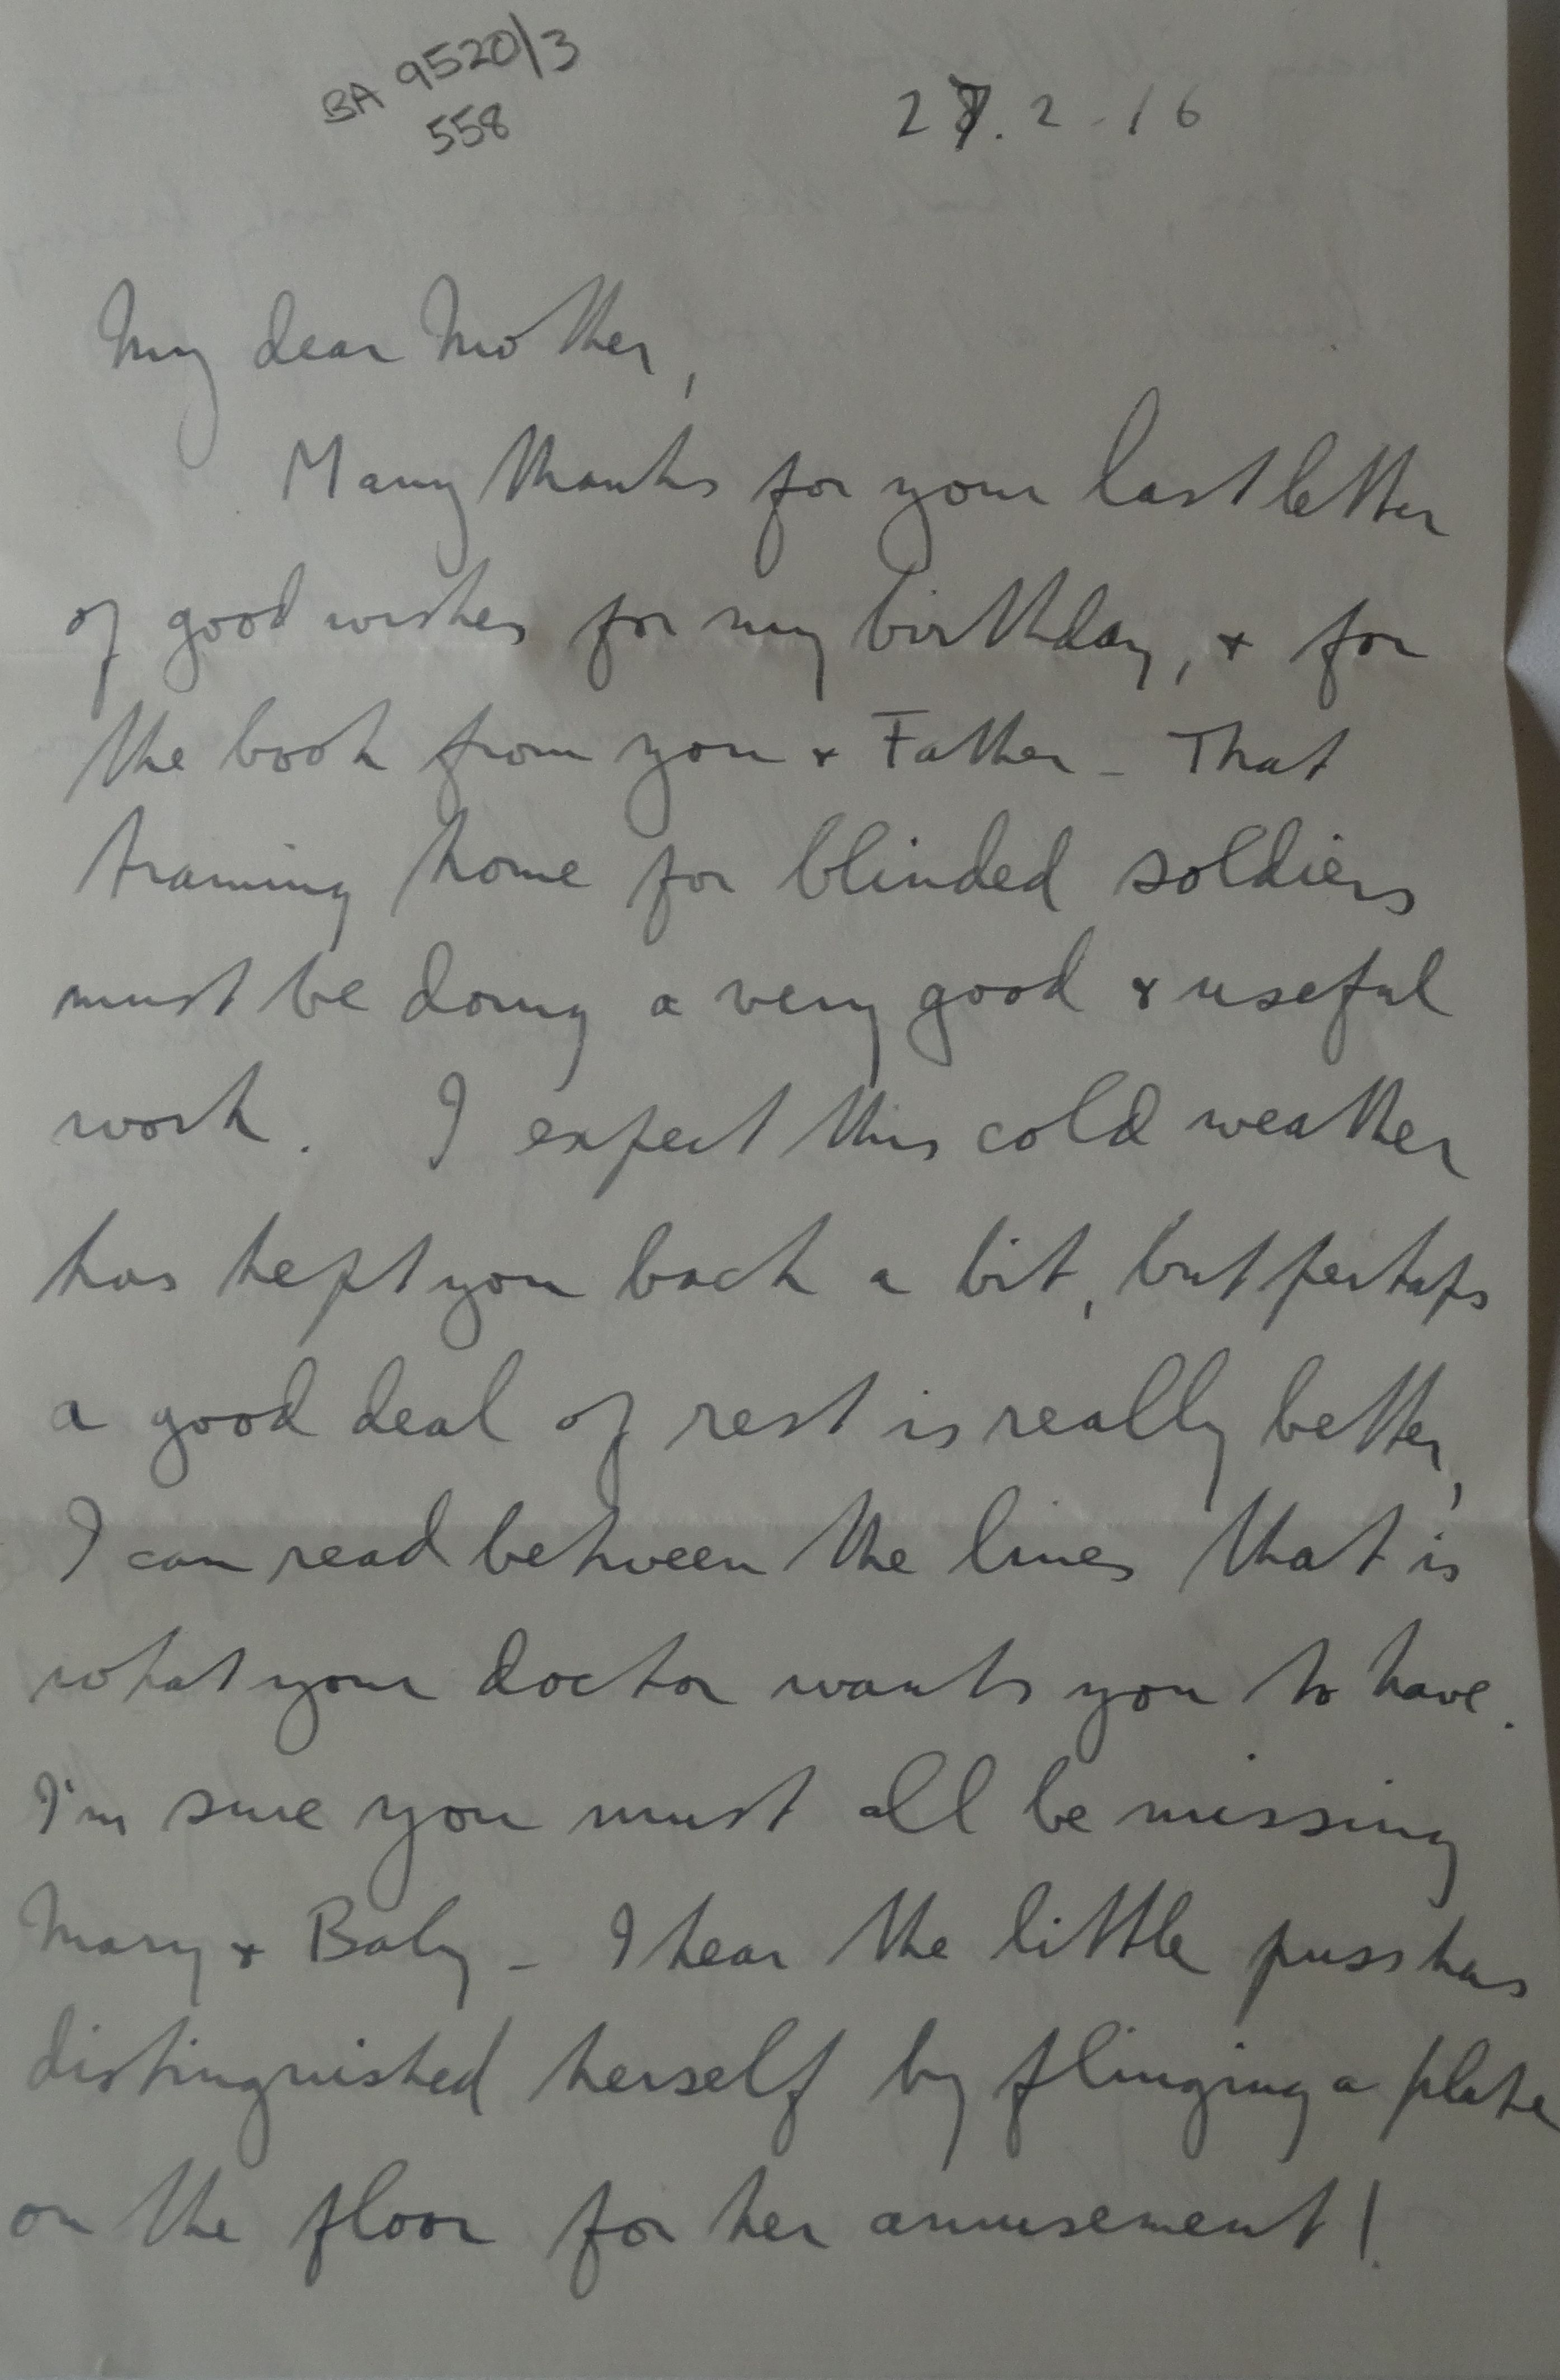 BA 9520/3
558
27.2.16
My dear Mother,
Many thanks for your last letter
of good wishes for my birthday, & for
the book from you & Father - That
training home for blinded soldiers
must be doing a very good & useful
work. I expect this cold weather
has kept you back a bit, but perhaps
a good deal of rest is really better,
I can read between the lines that is
what your doctor wants you to have.
I'm sure you must all be missing
Mary & Baby - I hear the little puss has
distinguished herself by flinging a plate
on the floor for her amusement!